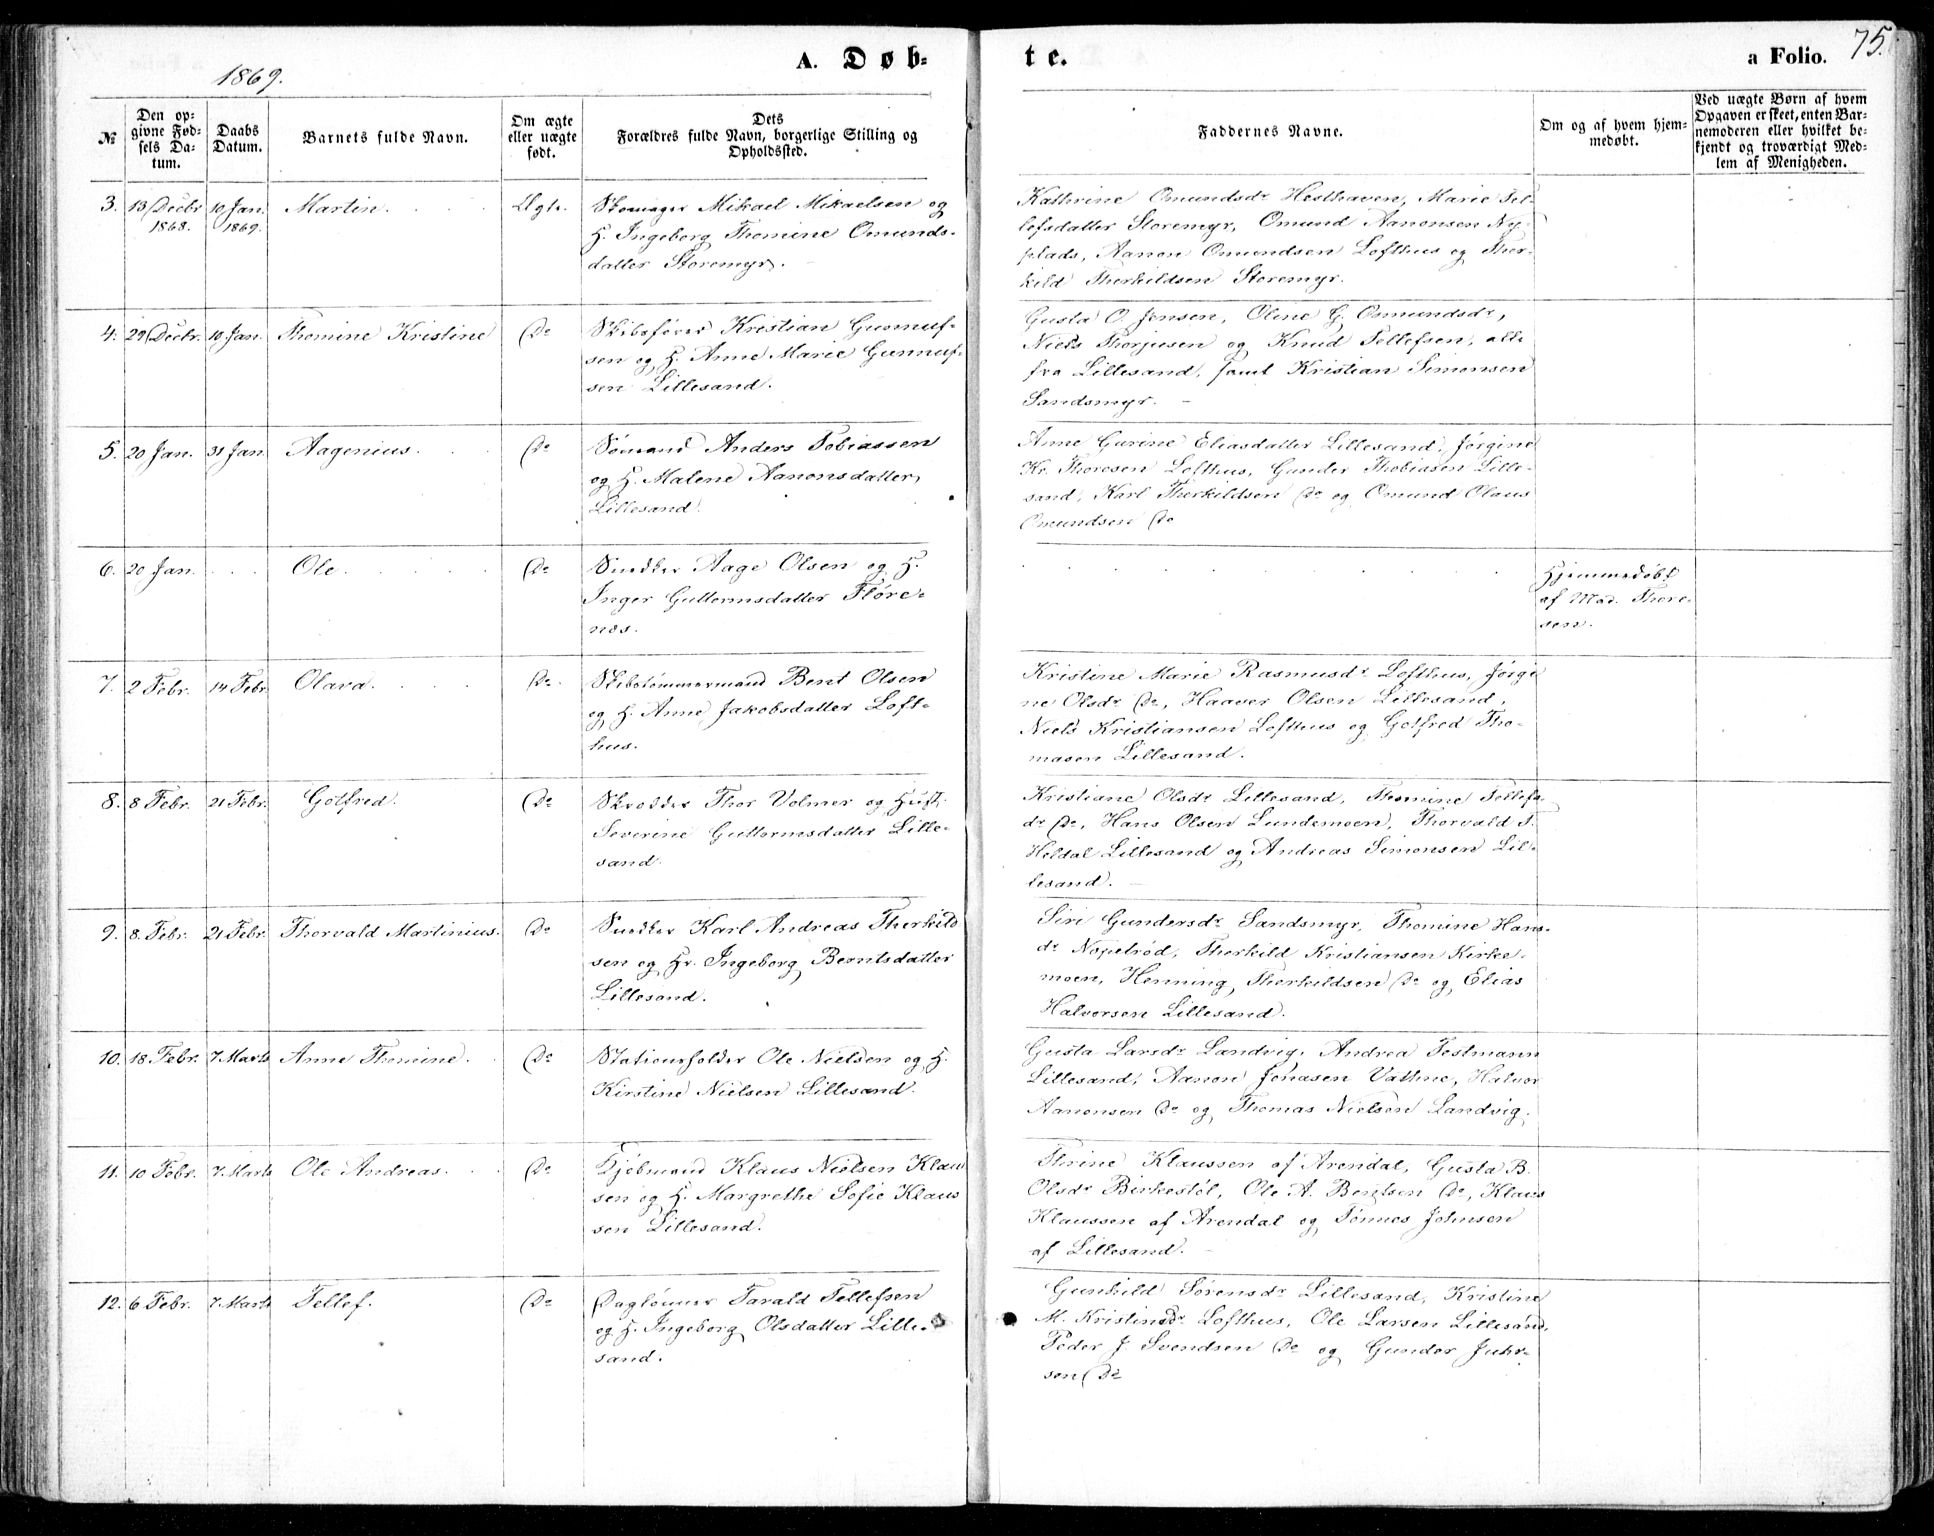 1869.
A. Døb-
te.
a Folio.
75.
№
Den op-
givne Fød-
sels Da-
tum.
Daabs
Datum.
Barnets fulde Navn.
Om ægte
eller uægte
født.
Dets
Forældres fulde Navn, borgerlige Stilling og
Opholdssted.
Faddernes Navne.
Om og af hvem hjem-
medøbt.
Ved uægte Børn af hvem
Opgaven er skeet, enten Bar-
nemoderen eller hvilket be-
kjendt og troværdigt Med-
lem af Menigheden.
3. 13 Decbr 10 Jan. Martin. Ægte. Skomager Mikael Mikaelsen og
1868. 1869. H. Ingeborg Thomine Omunds-
datter Storemyr.
Kathrine Omundsdr Hesthaven, Marie Tel-
lefsdatter Storemyr, Omund Aanonsen Ny-
plads, Aanon Omundsen Lofthus og Ther-
kild Therkildsen Storemyr.
4. 29 Decbr. 10 Jan. Thomine Kristine Do Skibsfører Kristian Gunnuf-
sen og H. Anne Marie Gunnuf-
sen Lillesand.
Gusta O. Jensen, Oline G. Omundsdr,
Niels Thorjusen og Knud Tellefsen, alle
fra Lillesand, samt Kristian Simonsen
Sandsmyr.
5. 20 Jan. 31 Jan. Aagenius. Do Sømand Anders Tobiassen
og H. Malene Aanonsdatter
Lillesand.
Anne Gurine Eliasdatter Lillesand, Jørgine
Kr. Thoresen Lofthus, Gunder Thobiasen Lille-
sand, Karl Therkildsen Do og Omund Olaus
Omundsen Do
6. 20 Jan. Ole. Do Snedker Aage Olsen og H.
Inger Guttormsdatter Fløre-
næs.
Hjemmedøbt
af Mad. Thore-
sen.
7. 2 Febr. 14 Febr. Olava. Do. Skibstømmermand Bent Olsen
og H. Anne Jakobsdatter Loft-
hus.
Kristine Marie Rasmusdr Lofthus, Jørgi-
ne Olsdr Do, Haaver Olsen Lillesand,
Niels Kristiansen Lofthus og Gotfred Tho-
masen Lillesand.
8. 8 Febr. 21 Febr. Gotfred. Do Skrædder Thor Volmer og Hust.
Severine Guttormsdatter Lille-
sand.
Kristiane Olsdr Lillesand, Thomine Tellefs-
dr Do, Hans Olsen Lundemoen, Thorvald T.
Heldal Lillesand og Andreas Simonsen Lil-
lesand.
9. 8. Febr. 21 Febr. Thorvald Martinius. Do Snedker Karl Andreas Therkild
sen og Hr. Ingeborg Berntsdatter
Lillesand.
Siri Gundersdr Sandsmyr, Thomine Hans-
dr Nopelrød, Therkild Kristiansen Kirke-
moen, Henning Therkildsen Do og Elias
Halvorsen Lillesand.
10. 18 Febr. 7 Marts Anne Thomine. Do Stationsholder Ole Nielsen og H.
Kirstine Nielsen Lillesand.
Gusta Larsdr Landvig, Andrea Testmann
Lillesand, Aanon Jonasen Vathne, Halvor
Aanonsen Do og Thomas Nielsen Landvig.
11. 10 Febr. 7. Marts Ole Andreas. Do Kjøbmand Klaus Nielsen Klau
sen og H. Margrethe Sofie Klaus
sen Lillesand.
Thrine Klaussen af Arendal, Gusta B.
Olsdr Birkestøl, Ole A. Bentsen Do, Klaus
Klaussen af Arendal og Tønnes Johnsen
af Lillesand.
12. 6 Febr. 7. Marts Tellef. Do Dagløner Tarald Tellefsen
og H. Ingeborg Olsdatter Lille-
sand.
Gunhild Sørensdr Lillesand, Kristine
M. Kristinsdr Lofthus, Ole Larsen Lillesand,
Peder J. Svendsen Do og Gunder Juhr-
sen Do